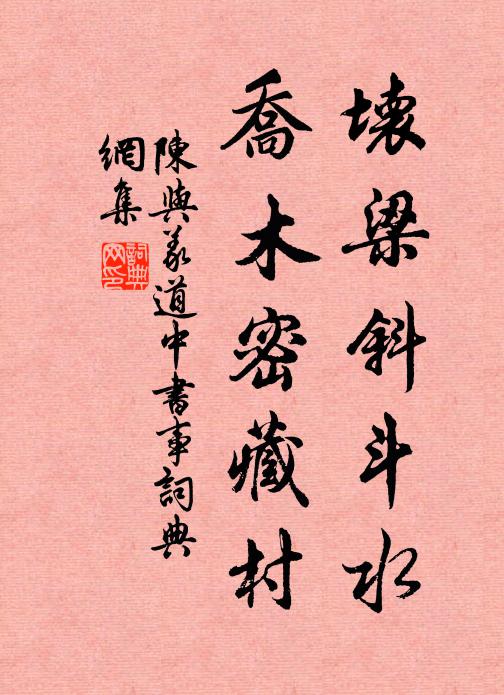 壊梁斜斗水
喬木密藏村
陳與義道中書事詞典
網集
詞典
网印